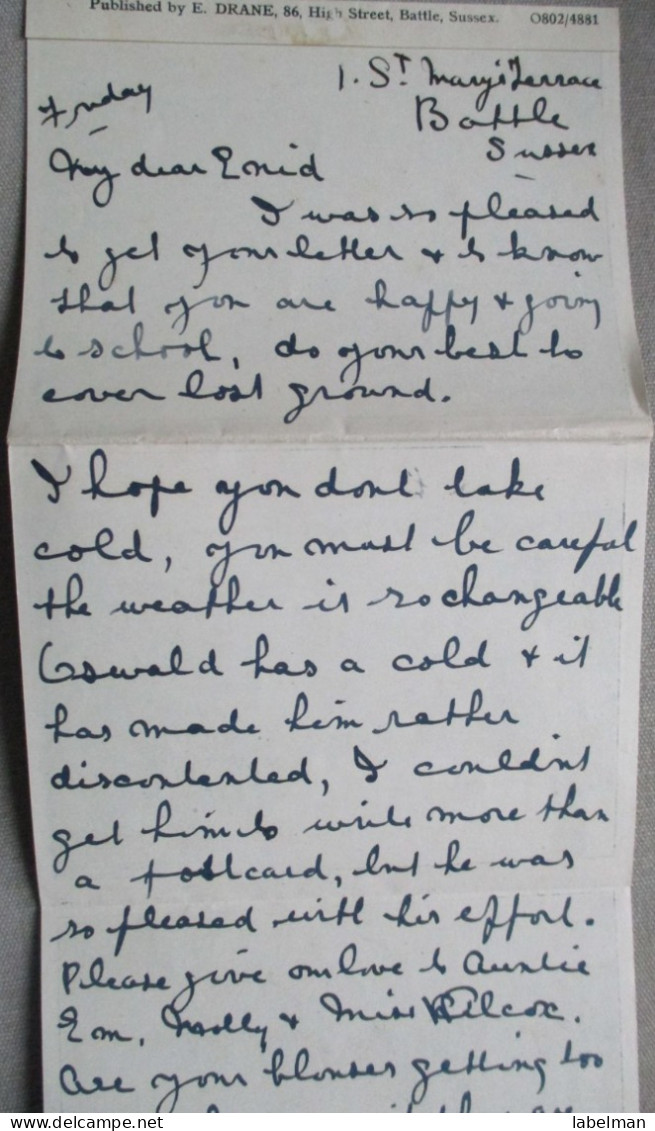 Published by E. DRANE, 86, High Street, Battle, Sussex. O802/4881
1. St Mary's Terrace
Friday
Battle
Sussex
My dear Enid
I was so pleased
to get your letter & to know
that you are happy & going
to school, do your best to
cover lost ground.
I hope you dont take
cold, you must be careful
the weather is so changeable
Oswald has a cold & it
has made him rather
discontented, I couldn't
get him to write more than
a postcard, but he was
so pleased with his effort.
Please give our love to Auntie
Em, Molly & Miss Wilcox.
Are your blouses getting too
they are
www.delcampe.net
labelman